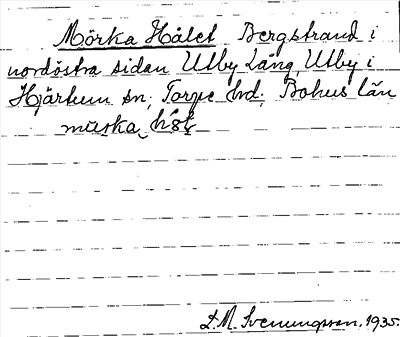 Mörka Hålet Bergstrand i
nordöstra sidan Utby Lång, Utby i
Hjärtum sn; Torpe hd; Bohus län
mürka hǫ́lt
L.M. Svenungsson, 1935.